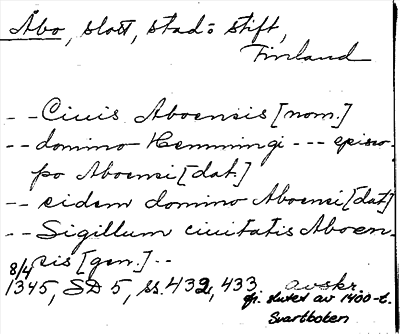 Åbo, slott, stad o stift,
Finland
- - Ciuis Aboensis [nom.]
- - domino Hemmingi - - - episco-
po Aboensi [dat.]
- - eidem domino Aboensi [dat]
- - Sigillum ciuitatis Aboen-
sis [gen.] - -
8/4
1345, SD 5, ss. 432, 433. avskr.
fr. slutet av 1400-t.
Svartboken